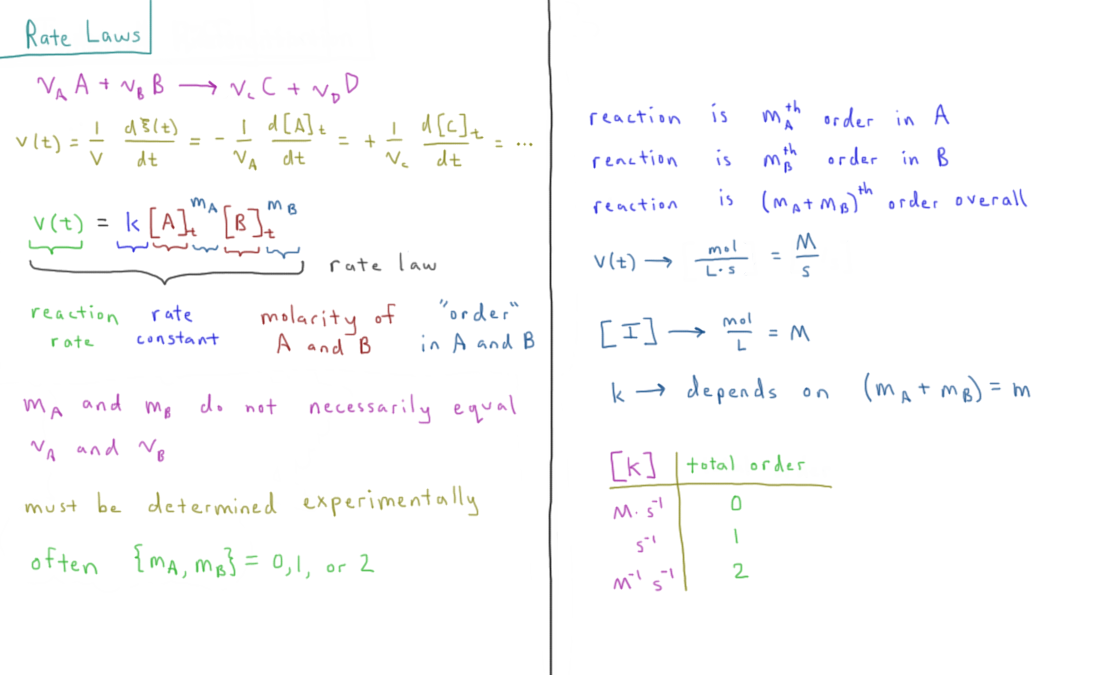 Rate Laws
ν_A A + ν_B B → ν_C C + ν_D D
v(t) = 1/V dξ(t)/dt = - 1/ν_A d[A]_t/dt = + 1/ν_C d[C]_t/dt = ...
v(t) = k[A]_t^m_A [B]_t^m_B
rate law
reaction rate
rate constant
molarity of A and B
"order" in A and B
m_A and m_B do not necessarily equal
ν_A and ν_B
must be determined experimentally
often {m_A, m_B} = 0,1, or 2
reaction is m_A^th order in A
renction is m_B^th order in B
reaction is (m_A + m_B)^th order overall
v(t) → mol/L·s = M/s
[I] → mol/L = M
k → depends on (m_A + m_B) = m
[k] total order
M·s^-1 0
s^-1 1
M^-1 s^-1 2